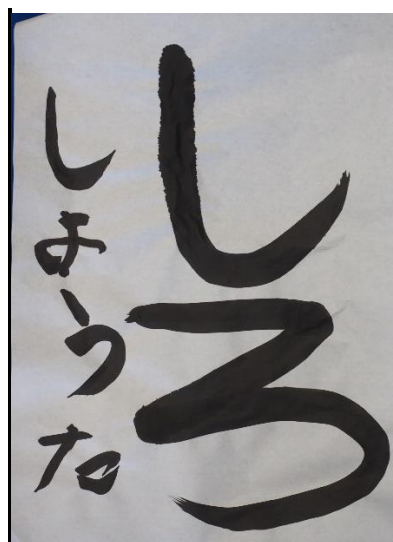 しろ
しようた